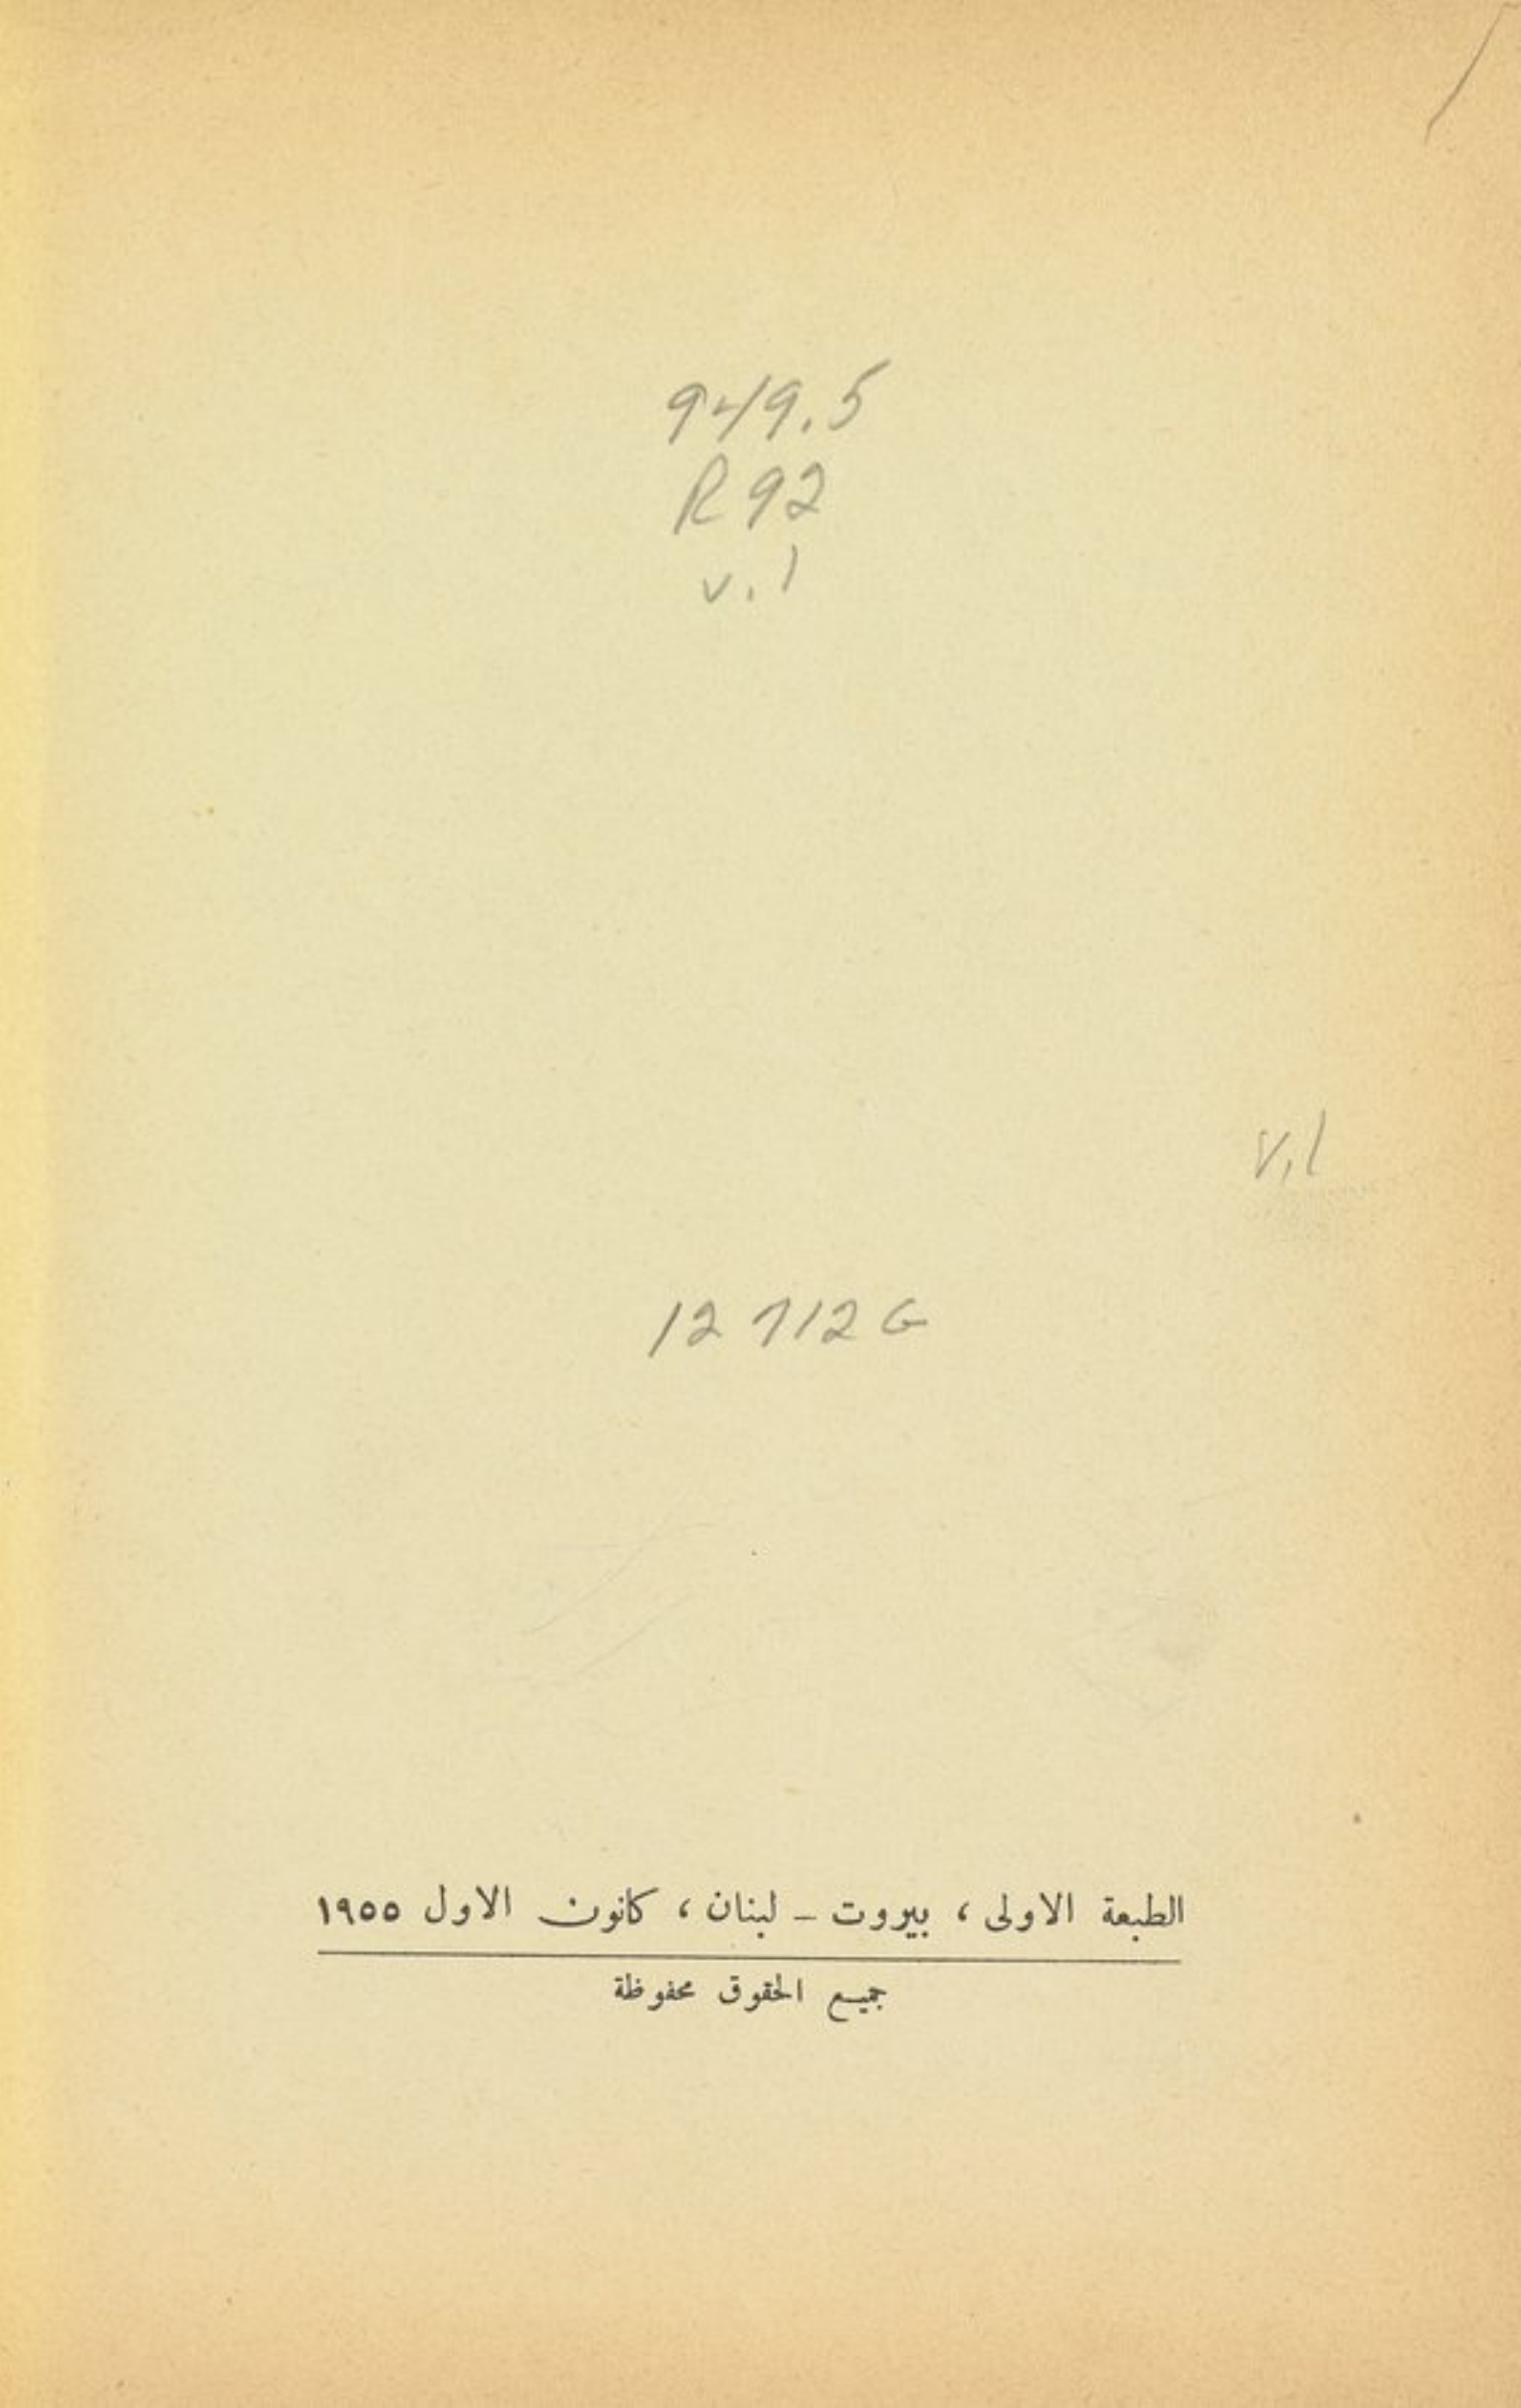 949.5
R92
v.1
v.1
12712G
الطبعة الاولى ، بيروت - لبنان ، كانون الاول ١٩٥٥
جميع الحقوق محفوظة